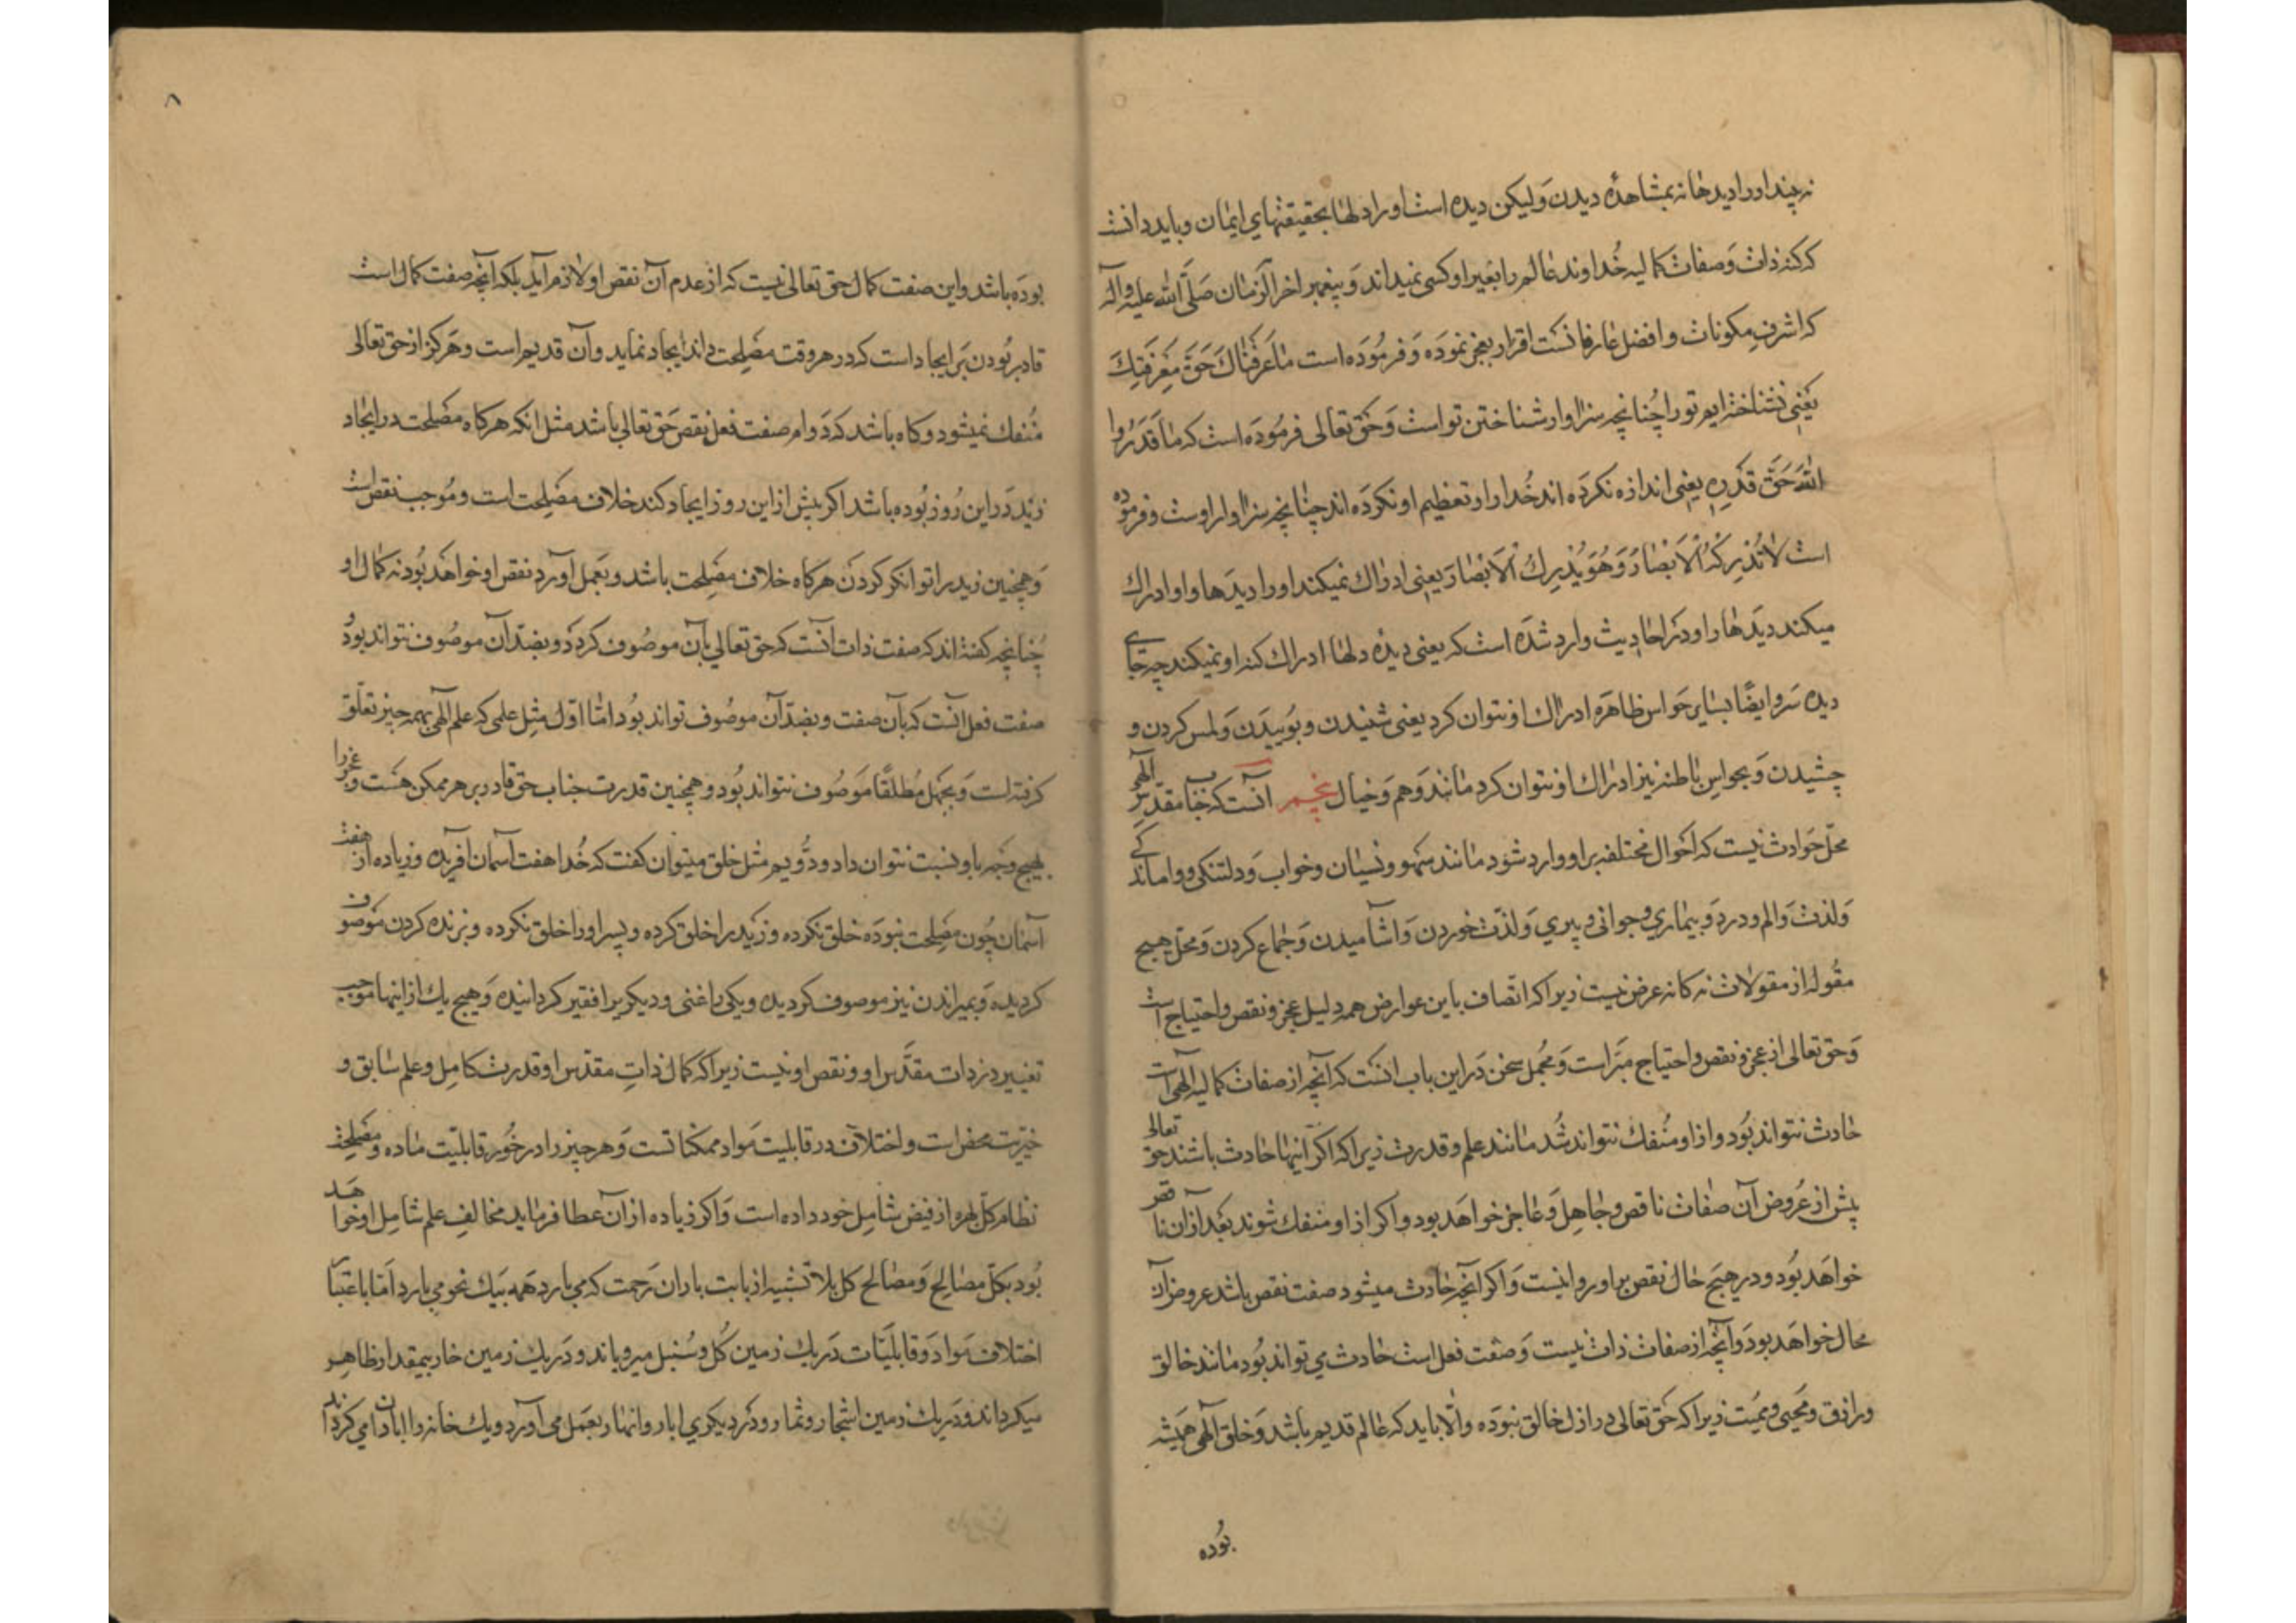 نه چند اورا دیدها نه بمشاهدهٔ دیدن وَلیکن دیده است اورا دلها بحقیقتهای ایمان و باید دانست
که کنه ذات وَصفات کمالیه خُداوند عالم را بغیر او کسی نمیداند وَپیغمبر اخر الزمان صَلَّی الله علیه وآله
که اشرفِ مکونات و افضل عارفانست اقرار بعجز نموَده وَفرمُودَه است مَا عَرَفْنَاكَ حَقَّ مَعْرِفَتِكَ
یَعنِی نشناخته ایم تورا چُنانچه سزاوار شناختن تواست وَحَق تعالی فرمُودَه است که مَا قَدَرُوا
اللهَ حَقَّ قَدْرِهِ یعنِی اندازه نکرَده اند خُدارا و تعظیم او نکرَده اند چنانچه سزاوار اوست وفرموده
است لَا تُدْرِكُهُ الْاَبْصَارُ وَهُوَ یُدْرِكُ الْاَبْصَارَ یعنِی ادراك نمیکند اورا دیدَها و او ادراك
میکند دیدَها را و دَر احادیث وارد شدَه است که یعنی دیدهٔ دلها ادراك کنه او نمیکند چه جای
دیده سَر و ایضًا بسایر حَواس ظاهرَه ادراك او نتوان کرد یعنی شنیدن و بوُییدَن وَلمس کردن و
چشیدن وَبحواس باطنه نیز ادراك او نتوان کرد مانند وَهم وَخیال پنجم آنست که جناب مقدّس الهی
محلّ حَوادث نیست که احَوال مختلفه بر او وارد شود مانند سَهو و نسیان و خواب وَدلتنکی و واماندکی
وَلذت وَالم و درد وَبیماری و جوانی و پیری وَلذّت خوردن وَاشامیدن وَجماع کردن وَمحلّ هیچ
مقُوله از مقولات نه کانه عرض نیست زیرا که اتصاف باین عوارض همه دلیل عجز و نقص و احتیاج است
وَحق تعالی از عجز و نقص و احتیاج مبَرّاست وَمجُمل سخن دَر این باب انست که آنچه از صفات کمالیه الهی است
حادث نتواند بُود و از او مُنفك نتواند شُد مانند علم و قدرت زیرا که اکر آنها حادث باشند حق تعالی
پیش از عُروض آن صفات ناقص و جاهِل وَعاجز خواهَد بود و اکر از او منفك شوند بَعَد از ان ناقص
خواهَد بوُد و در هیچ حال نقص بر او روا نیست وَاکر آنچه حادث میشود صفت نقص باشد عروض آن
محال خواهَد بودَ و آنچه از صفات ذات نیست وَصفت فعل است حادث می تواند بُود مانند خالق
ورازق ومُحیی ومُمیت زیرا که حَق تعالی در ازل خالق نبودَه والّا باید که عالم قدیم باشد وَخلق الهی همیشه
بوُده
۸
بودَه باشد و این صفت کمال حق تعالی نیست که از عدم آن نقص او لازم آید بلکه آنچه صفت کمال است
قادر بُودن بَر ایجاد است که در هر وقت مصلحت داند ایجاد نماید و آن قدیم است و هَرکز از حق تعالی
مُنفك نمیشود و کاه باشد که دَوام صفت فعل نقص حَق تعالی باشد مثل انکه هرکاه مصلحت در ایجاد
زید دَر این رُوز بُوده باشد اکر پیش از این روز ایجاد کند خلاف مصلحت است و مُوجب نقص است
وَهمچنین زید را توانکر کردَن هرکاه خلاف مصلحت باشد و بعَمل آورد نقص او خواهَد بُود نه کمال او
چُنانچه کفته اند که صفت ذات آنست که حق تعالی بآن موصُوف کردَد و بضدّ آن موصُوف نتواند بود
صفت فعل انست که بآن صفت و بضدّ آن موصُوف تواند بوُد امّا اوّل مثِل علم که علم الهی بهمه چیز تعلّق
کرفته است وَبجهل مُطلقًا مَوصُوف نتواند بُود و همچنین قدرت جناب حق قادر بر هر ممکن هسَت و عجز را
بهیچ وَجه باو نسبت نتوان داد و دوُّیم مثل خلق میتوان کفت که خُدا هفت آسمان آفریده و زیاده از هفت
آسمان چُون مصلحت نبودَه خلق نکرده و زَید را خلق کرده و پسر اورا خلق نکرده و بزنده کردن مَوصُوف
کردیده وَبمیراندن نیز موصوف کردیده و یکی را غنی و دیکری را فقیر کردانیده وَهیچ یك از اینها موجب
تغییر در ذات مقدَّس او و نقص او نیست زیرا که کمال ذاتِ مقدّس او قدرت کامِل و علم سابق و
خیریّت محض است و اختلاف در قابلیت مَواد ممکناتست وَهر چیز را در خُور قابلیّت مادّه و مصلحت
نظام کلّ بهره از فیض شامِل خود داده است وَاکر زیاده از آن عطا فرماید مخالفِ علم شامِل او خواهَد
بُود بکلّ مصالح وَمصالح کل بلا تشبیه از بابت باران رَحمت که می بارد همَه بیك نحو می بارد اَمّا باعتبار
اختلاف مَوادّ وَقابلیّات دَر یك زمین کُل و سُنبل میرویاند و دَر یك زمین خار بیمقدار ظاهِر
میکرداند و دَر یك زمین اشجار و ثمار و دَر دیکری ابار و انهار بعَمل می آورد و یك خانه را ابادان می کرداند